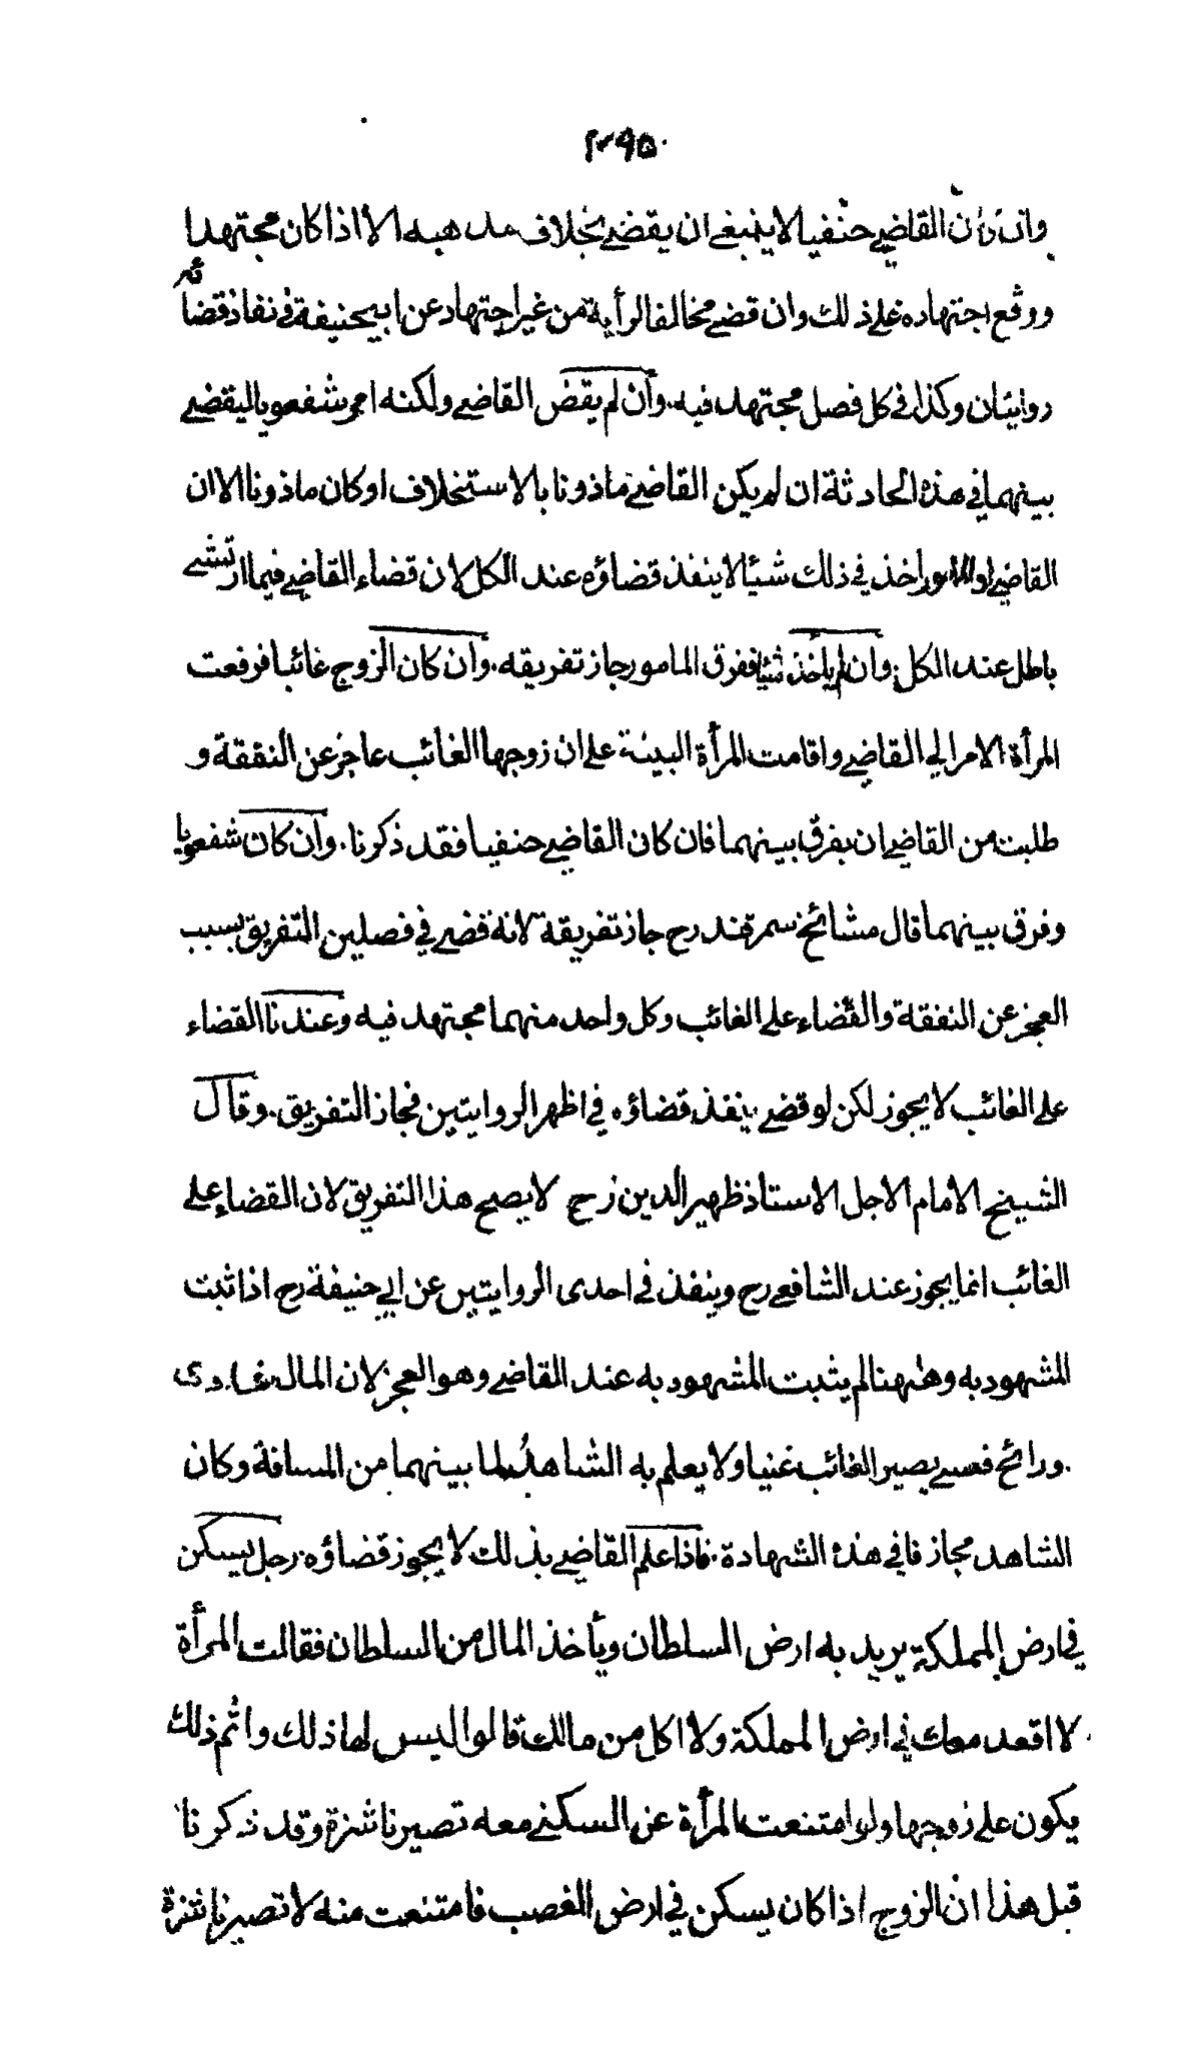 ٢٩٥
وان كان القاضي حنفيا لا ينبغي ان يقضي بخلاف مذهبه الا اذا كان مجتهدا
ووقع اجتهاده على ذلك وان قضى مخالفا لرأيه من غير اجتهاد عن ابي حنيفة في نفاذ قضائه
روايتان وكذا في كل فصل مجتهد فيه. وان لم يقض القاضي ولكنه امر شفعويا ليقضي
بينهما في هذه الحادثة ان لم يكن القاضي ماذونا بالاستخلاف او كان ماذونا الا ان
القاضي او المامور اخذ في ذلك شيئا لا ينفذ قضاؤه عند الكل لان قضاء القاضي فيما ارتشى
باطل عند الكل. وان لم يأخذ شيئا ففرق المامور جاز تفريقه. وان كان الزوج غائبا فرفعت
المرأة الامر الى القاضي واقامت المرأة البينة على ان زوجها الغائب عاجز عن النفقة و
طلبت من القاضي ان يفرق بينهما فان كان القاضي حنفيا فقد ذكرنا. وان كان شفعويا
وفرق بينهما قال مشائخ سمرقند رح جاز تفريقة لانه قضى في فصلين التفريق بسبب
العجز عن النفقة والقضاء على الغائب وكل واحد منهما مجتهد فيه وعندنا القضاء
على الغائب لا يجوز لكن لو قضى ينفذ قضاؤه في اظهر الروايتين فجاز التفريق. وقال
الشيخ الامام الاجل الاستاذ ظهير الدين رح لا يصح هذا التفريق لان القضاء على
الغائب انما يجوز عند الشافعي رح وينفذ في احدى الروايتين عن ابي حنيفة رح اذا ثبت
المشهود به وههنا لم يثبت المشهود به عند القاضي وهو العجز لان المال غادى
ورائح فعسى يصير الغائب غنيا ولا يعلم به الشاهد لما بينهما من المسافة وكان
الشاهد مجازفا في هذه الشهادة. فاذا علم القاضي بذلك لا يجوز قضاؤه. رجل يسكن
في ارض المملكة يريد به ارض السلطان ويأخذ المال من السلطان فقالت المرأة
لا اقعد معك في ارض المملكة ولا اكل من مالك قالوا ليس لها ذلك واثم ذلك
يكون على زوجها ولو امتنعت المرأة عن السكنى معه تصير ناشزة وقد ذكرنا
قبل هذا ان الزوج اذا كان يسكن في ارض الغصب فامتنعت منه لا تصير ناشزة